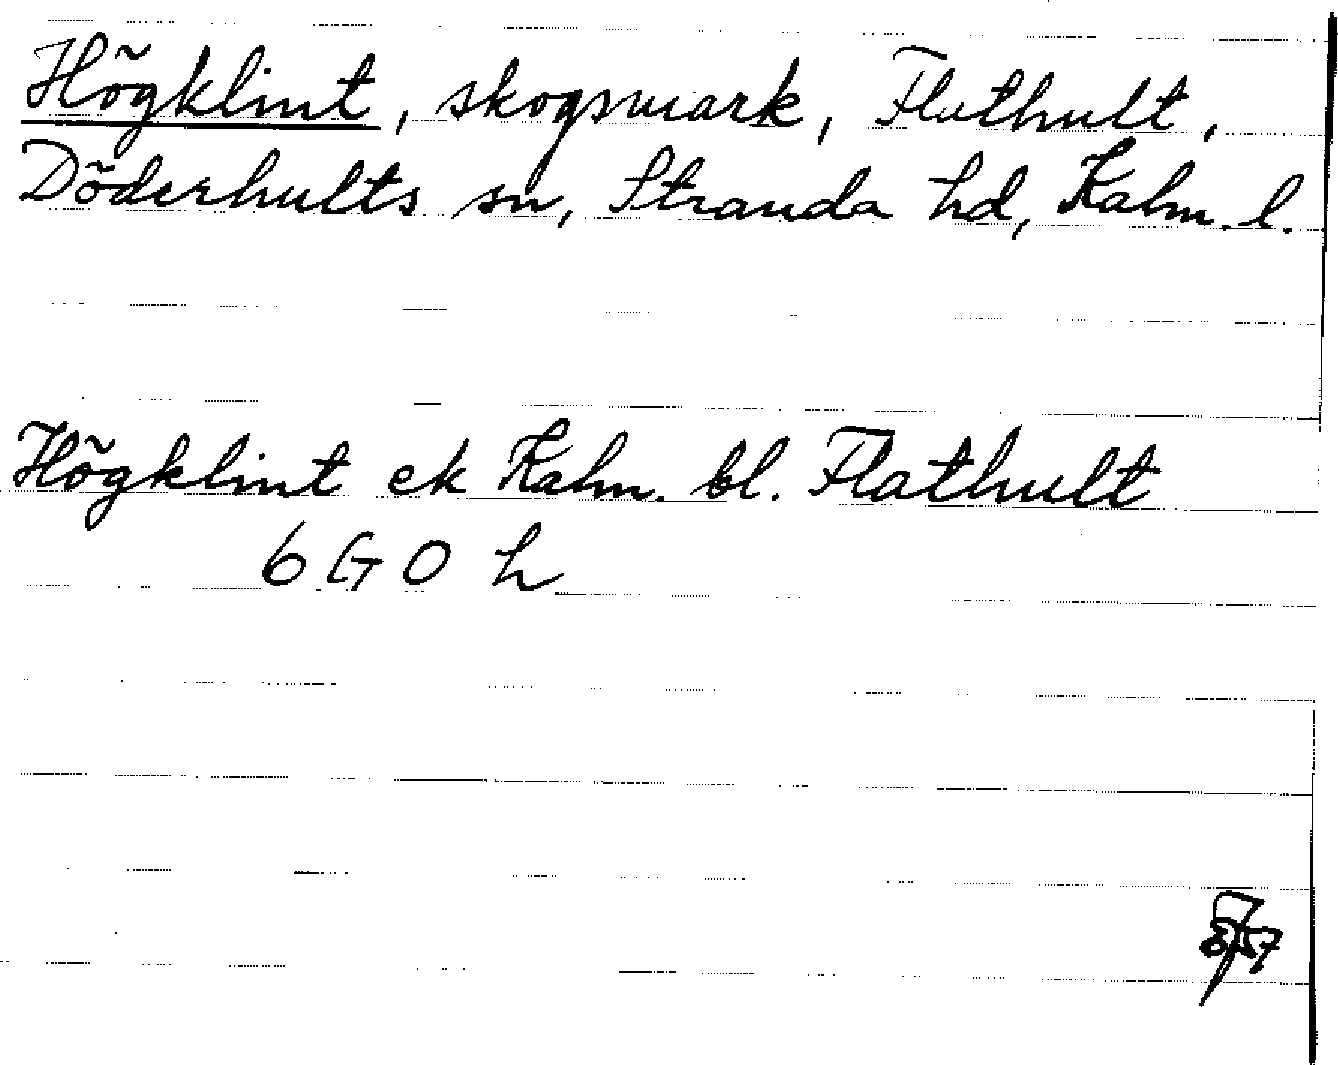 Högklint, skogsmark, Flathult,
Döderhults sn, Stranda hd, Kalm. l.
Högklint ek Kalm. bl. Flathult
6 G 0 h